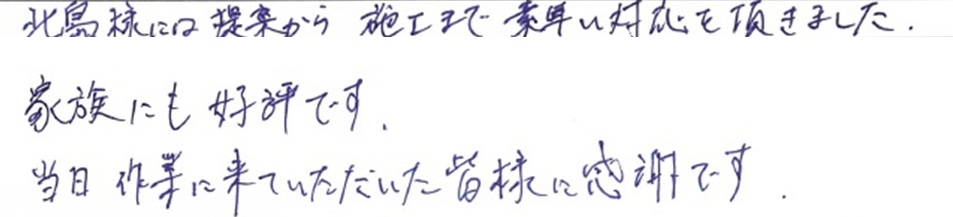 北島様には提案から 施工まで 素早い対応を頂きました.
家族にも 好評です.
当日 作業に来ていただいた皆様に感謝です.